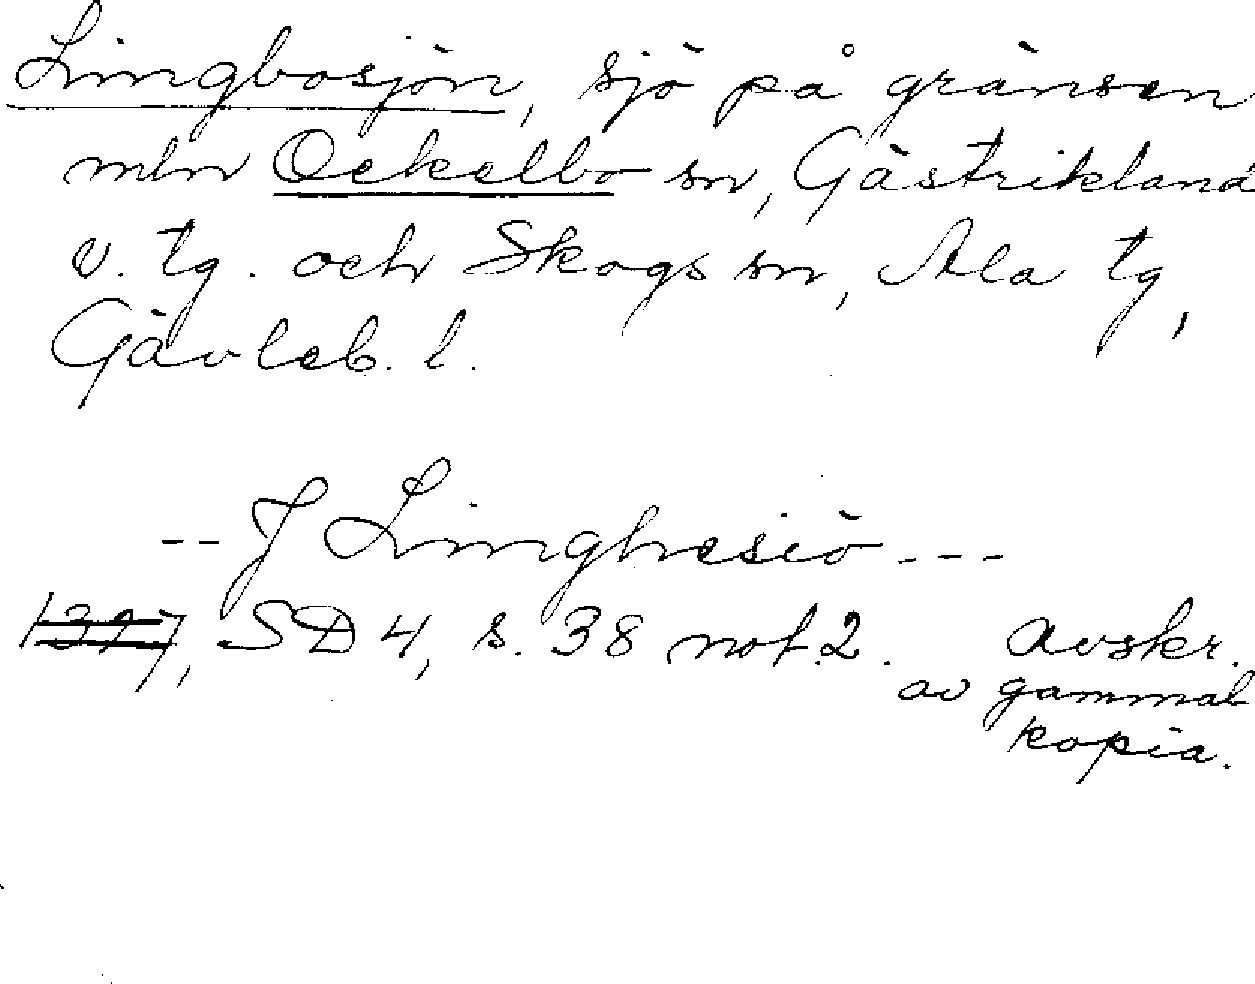 Lingbosjön, sjö på gränsen
mln Ockelbo sn, Gästrikland
v. tg. och Skogs sn, Ala tg,
Gävleb. l.
-- J Linghesiö ---
, SD 4, s. 38 not.2. Avskr.
av gammal
kopia.